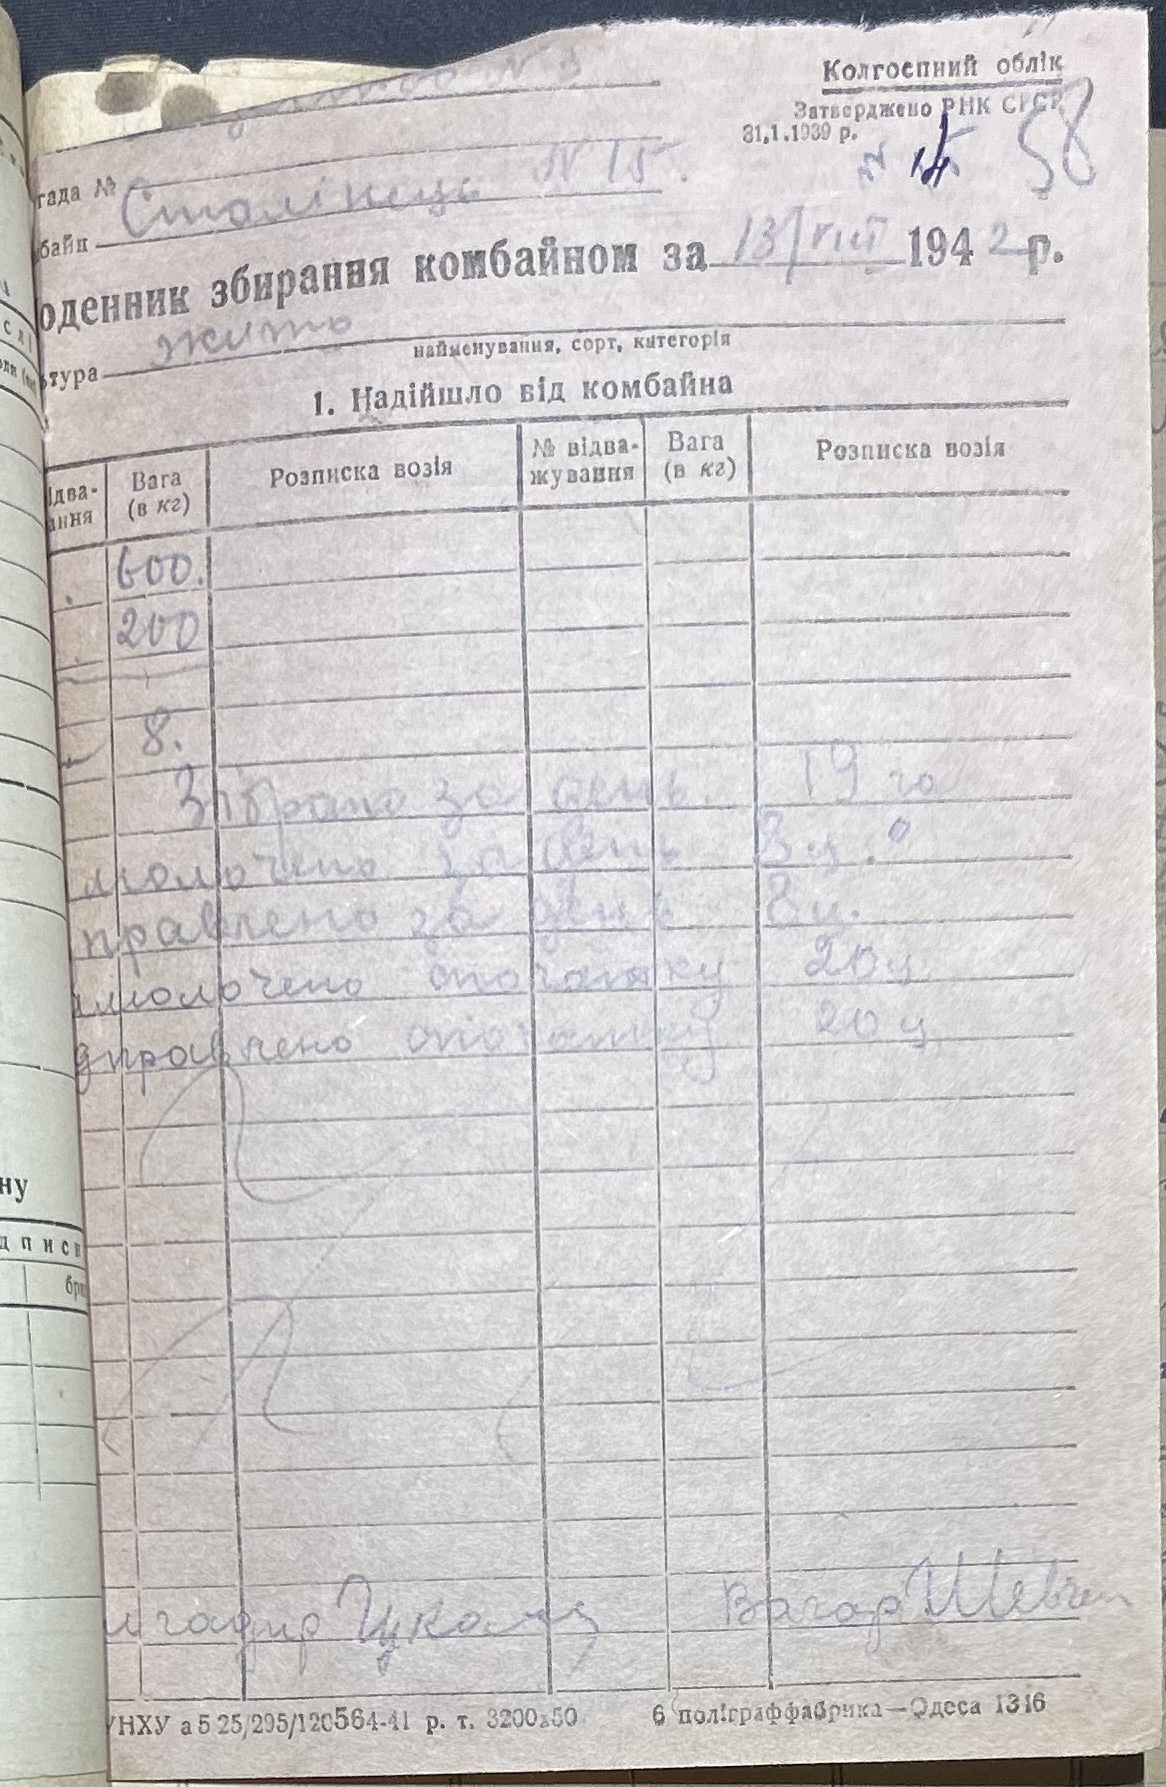 Колгоспний облік
Затверджено РНК СРСР
31.1.1939 р.
58
гада №
N 15.
байн Сталінець
оденник збирання комбайном за 13/VIII 1942 р.
ьтура жито
найменування, сорт, категорія
1. Надійшло від комбайна
ідва- Вага Розписка возія № відва- Вага Розписка возія
ання (в кг) жування (в кг)
600.
200
8.
Зібрано за день 19 га
молочено за день 8 ц.
правлено за день 8 ц.
амолочено спочатку 20 ц
дправлено спочатку 20 ц.
игадир Вагар Шевчен
УНХУ а 5 25/295/120564-41 р. т. 3200х50 6 поліграффабрика—Одеса 1346
ну
дписи
бри